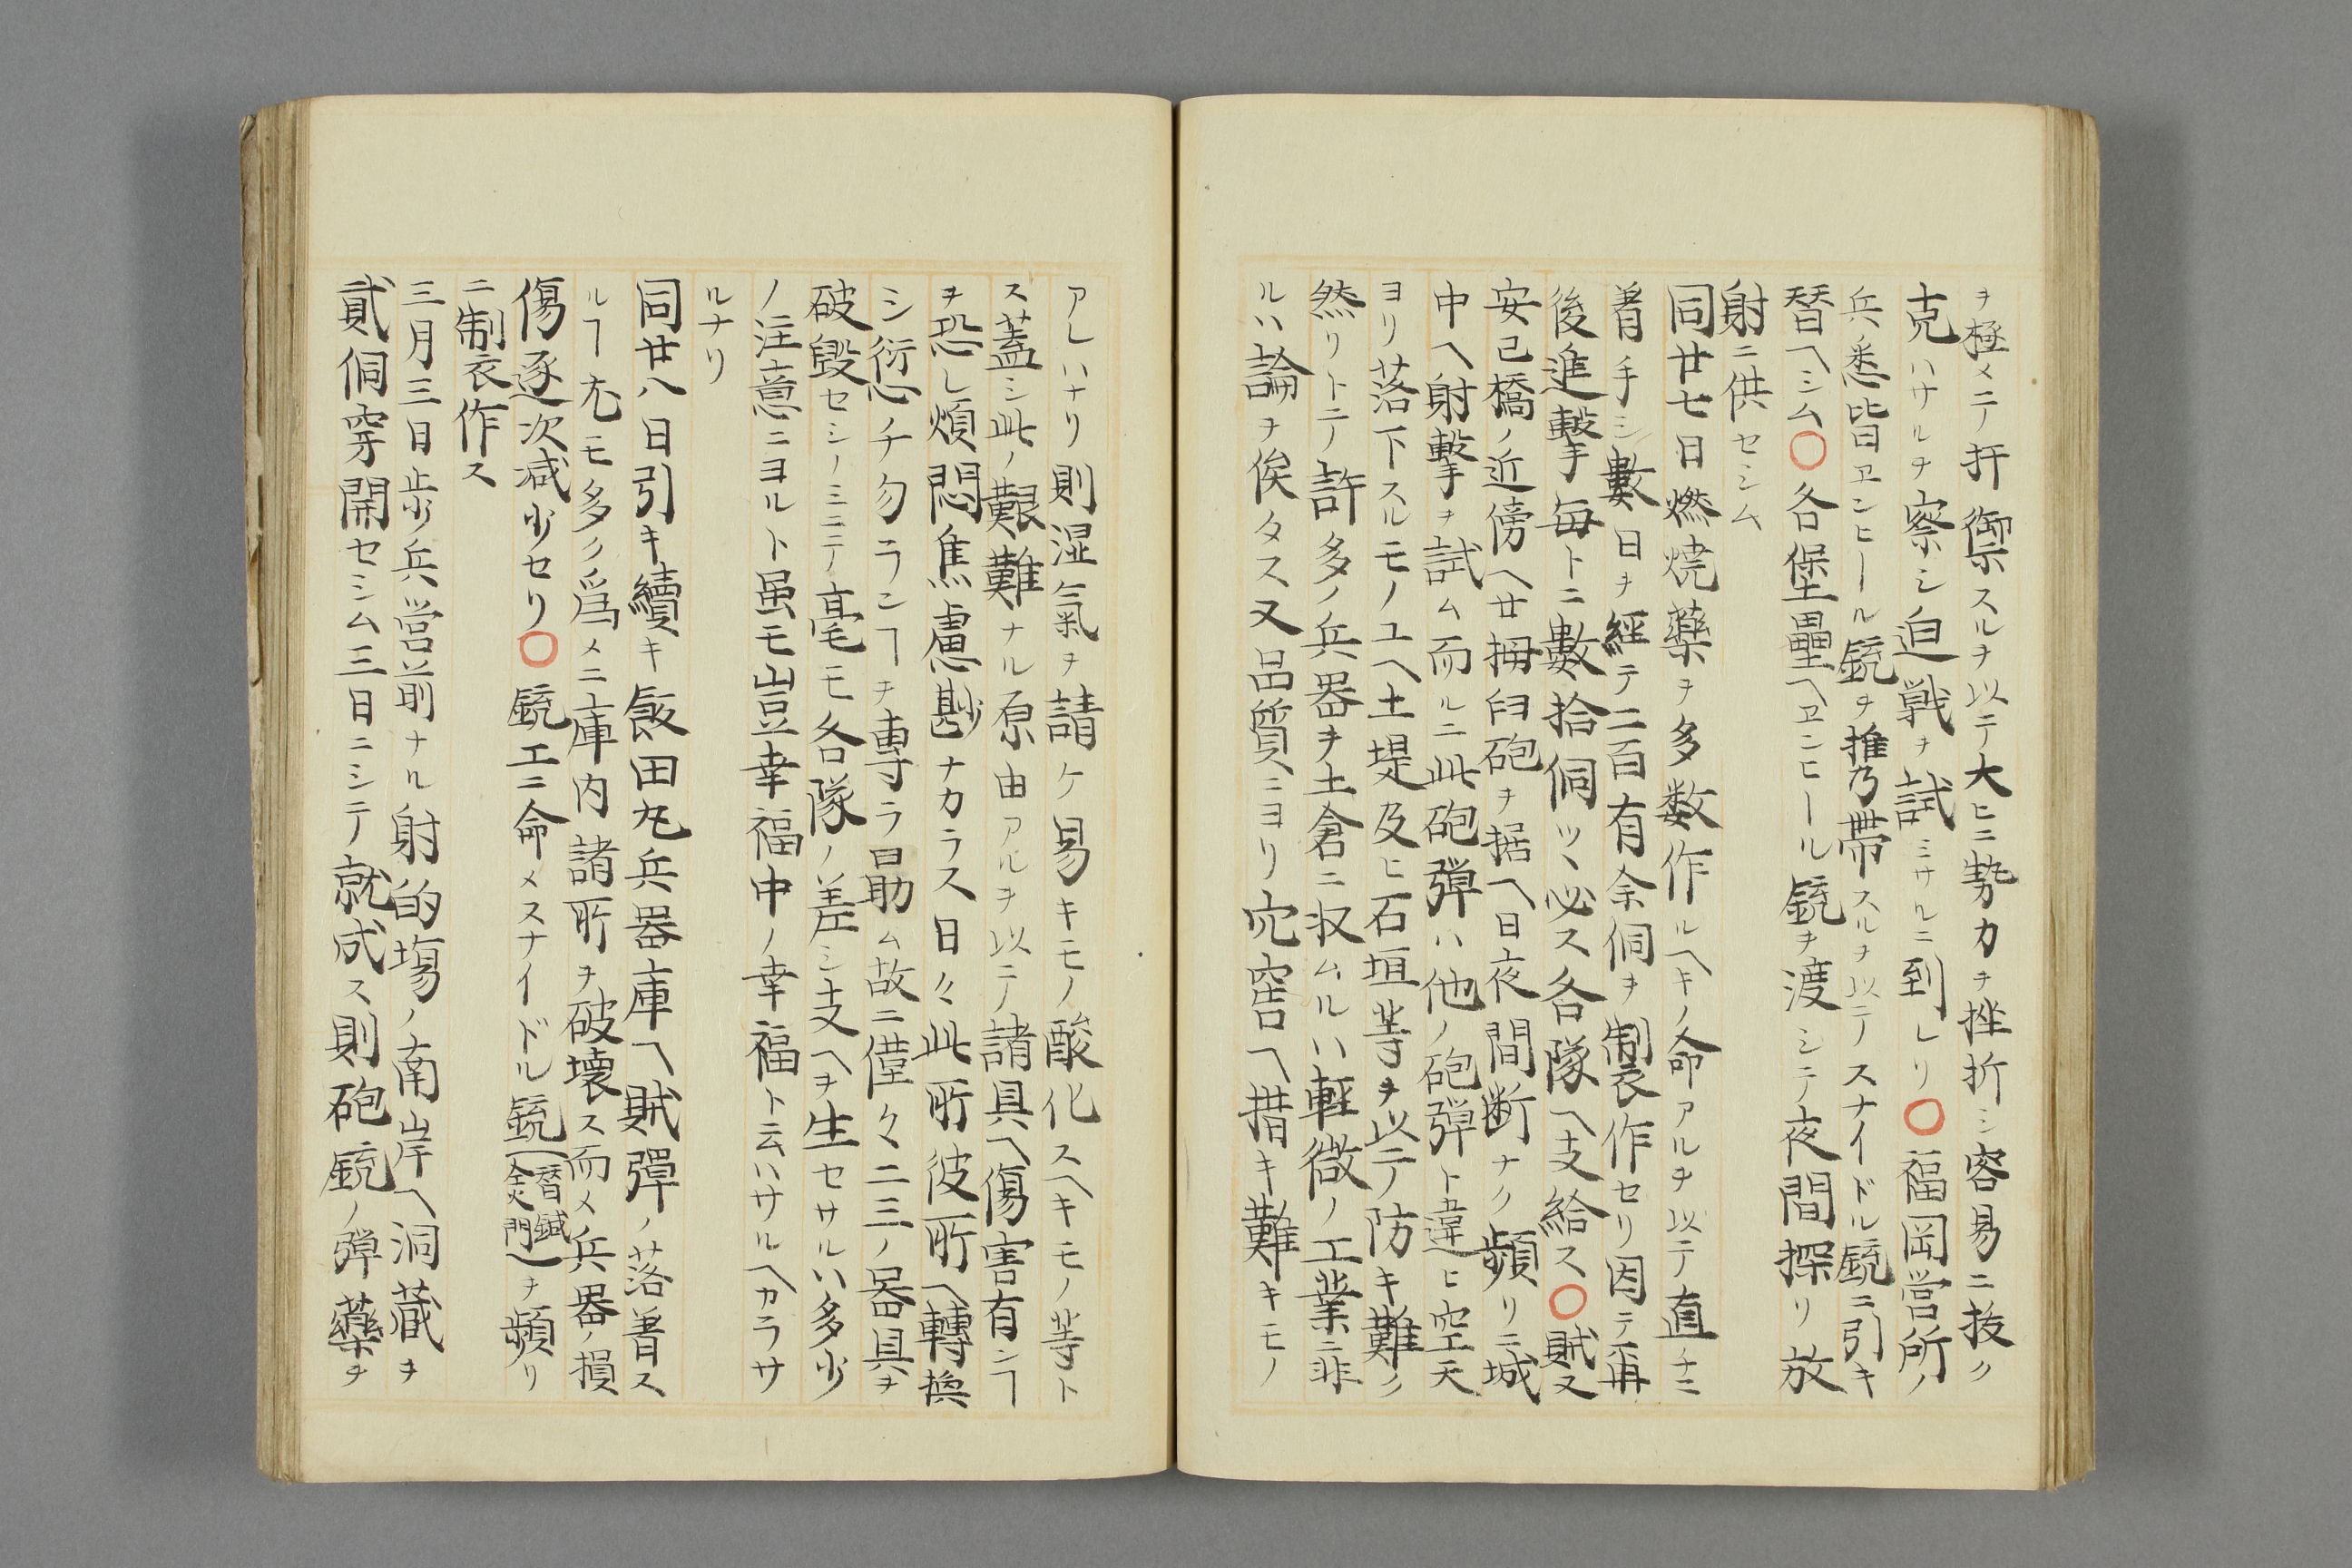 ヲ極メテ扞禦スルヲ以テ大ヒニ勢力ヲ挫折シ容易ニ抜ク
克ハサルヲ察シ迫戦ヲ試ミサルニ到レリ〇福岡営所ノ
兵悉皆ヱンヒール銃ヲ携帯スルヲ以テスナイドル銃ニ引キ
替ヘシム〇各堡壘ヘヱンヒール銃ヲ渡シテ夜間探リ放
射ニ供セシム
同廿七日燃焼藥ヲ多数作ルヘキノ命アルヲ以テ直チニ
着手シ數日ヲ經テ二百有余個ヲ製作セリ因テ再
後進撃毎トニ數拾個ツヽ必ス各隊ヘ支給ス〇賊又
安已橋ノ近傍ヘ廿拇臼砲ヲ据ヘ日夜間断ナク頻リニ城
中ヘ射撃ヲ試ム而ルニ此砲彈ハ他ノ砲彈ト違ヒ空天
ヨリ落下スルモノユヘ土堤及ヒ石垣等ヲ以テ防キ難ク
然リトテ許多ノ兵器ヲ土倉ニ収ムルハ軽微ノ工業ニ非
ルハ論ヲ俟タス又品質ニヨリ宂窖ヘ措キ難キモノ
アレハナリ則湿氣ヲ請ケ易キモノ酸化スヘキモノ等ト
ス蓋シ此ノ艱難ナル原由アルヲ以テ諸具ヘ傷害有ンヿ
ヲ恐レ煩悶焦慮尠ナカラス日々此所彼所ヘ轉換
シ衍チ勿ランヿヲ専ラ勗ム故ニ僅々二三ノ器具ヲ
破毀セシノミニテ毫モ各隊ノ差シ支ヘヲ生セサルハ多少
ノ注意ニヨルト虽モ豈幸福中ノ幸福ト云ハサルヘカラサ
ルナリ
同廿八日引キ續キ飯田丸兵器庫ヘ賊彈ノ落着ス
ルヿ尤モ多ク爲メニ庫内諸所ヲ破壊ス而メ兵器ノ損
傷逐次减少セリ〇銃工ニ命メスナイドル銃(替鍼金火門)ヲ頻リ
ニ制衣作ス
三月三日歩兵営前ナル射的塲ノ南岸ヘ洞蔵ヲ
貳個穿開セシム三日ニシテ就成ス則砲銃ノ彈藥ヲ